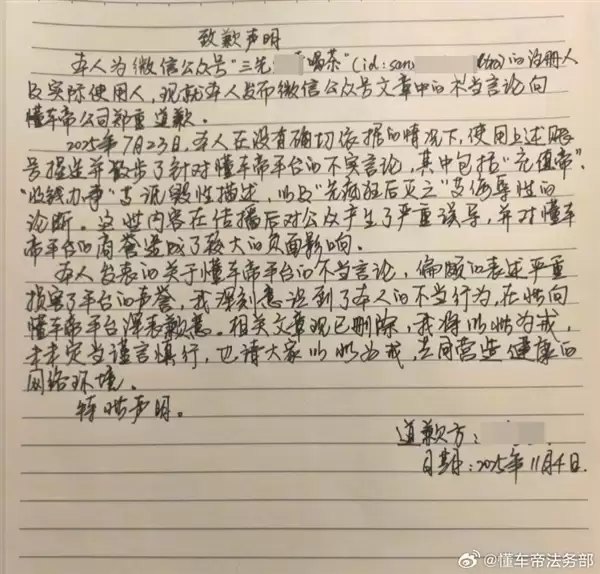 致歉声明
本人为微信公众号"三先 喝茶"(id:san )的注册人
及实际使用人,现就本人发布微信公众号文章中的不当言论向
懂车帝公司郑重道歉。
2025年7月23日,本人在没有确切依据的情况下,使用上述账
号捏造并散步了针对懂车帝平台的不实言论,其中包括"充值帝"、
"收钱办事"等诋毁性描述,以及"先疯狂后灭之"等侮辱性的
论断。这些内容在传播后对公众产生了严重误导,并对懂车
帝平台的商誉造成了较大的负面影响。
本人发表的关于懂车帝平台的不当言论,偏颇的表述严重
损害了平台的声誉,我深刻意识到了本人的不当行为,在此向
懂车帝平台深表歉意。相关文章现已删除,我将以此为戒,
未来定当谨言慎行,也请大家以此为戒,共同营造健康的
网络环境。
特此声明。
道歉方:
日期:2025年11月4日.
@懂车帝法务部